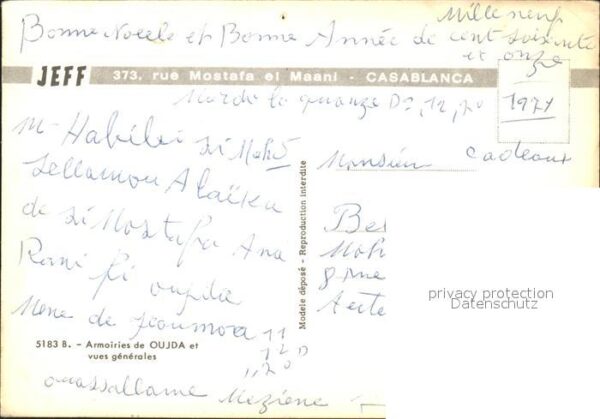 Bonne Noeele et Bonne Année de Mille neuf
cent soixante
et onze
1971
JEFF 373, rue Mostafa el Maani - CASABLANCA
Mardo le quanze D2, 12, 70
Mr Habibi si Moho
Sellamou Alaïku
de si Mostafa Ana
Rani fi oujda
11
12
70
5183 B. - Armoiries de OUJDA et
vues générales
ouassallame Meziene
Modèle déposé - Reproduction interdite
Monsieur Cadeaux
Be
Moh
8 rue
privacy protection
Datenschutz